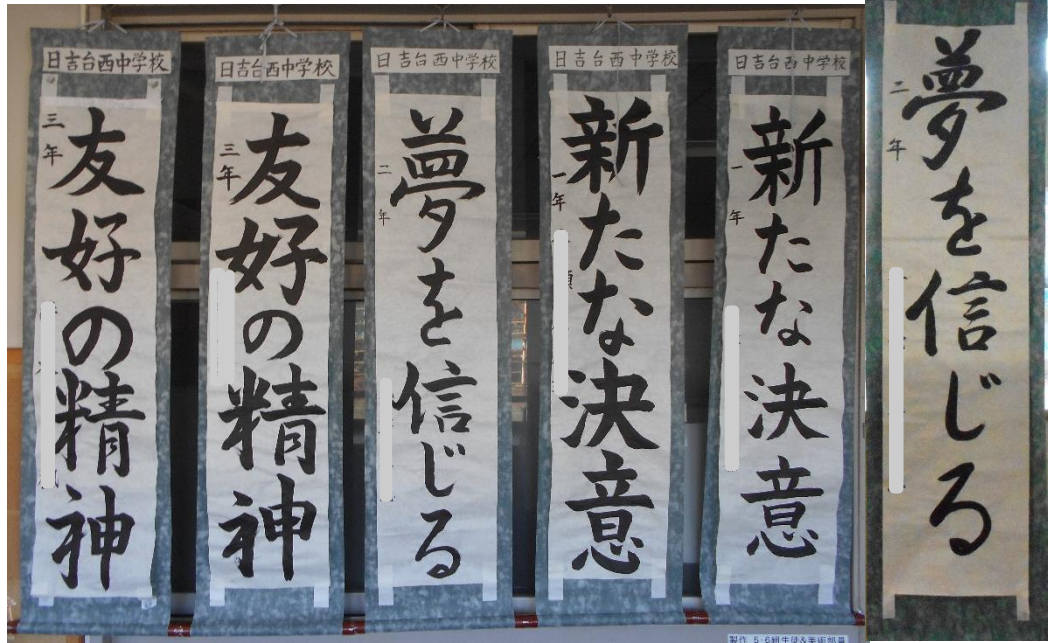 日吉台西中学校
三年
友好の精神
日吉台西中学校
三年
友好の精神
日吉台西中学校
二年
夢を信じる
日吉台西中学校
一年
新たな決意
日吉台西中学校
一年
新たな決意
二年
夢を信じる
製作 5・6組生徒&美術部員